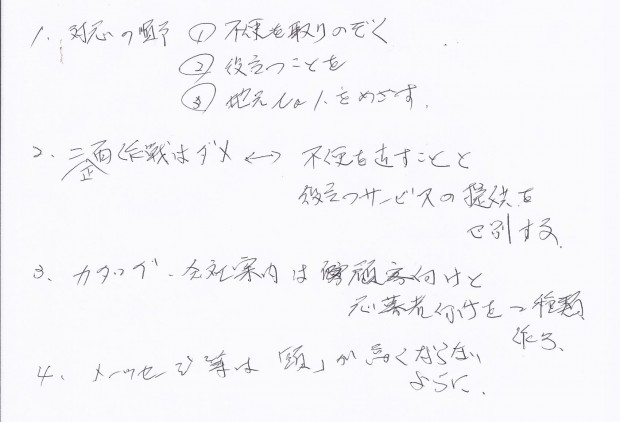 1. 対応の順序 ① 不便を取りのぞく
② 役立つことを
③ 地元No1.をめざす.
2、二正面作戦はダメ ↔ 不便を直すことと
役立つサービスの提供を
区別する.
3、カタログ・会社案内は 顧客付けと
応募者付けを2種類
作る、
4、メッセージ等は「頭」が高くならない
ように.